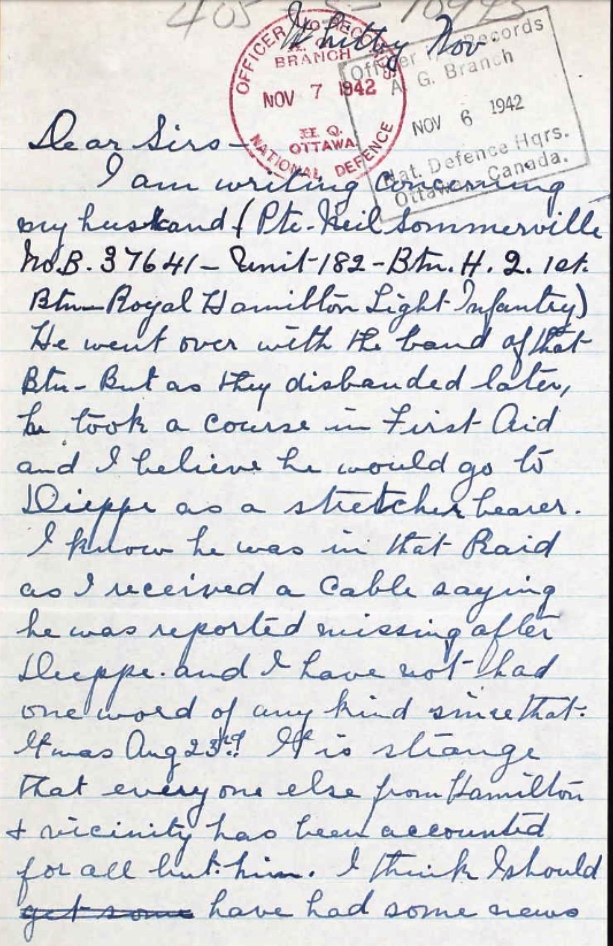 Whitby Nov.
OFFICER I/C RECORDS
A. G. BRANCH
NOV 7 1942
N. D. H. Q.
OTTAWA.
NATIONAL DEFENCE
Officer I/C Records
A. G. Branch
NOV 6 1942
Nat. Defence Hqrs.
Ottawa, Canada.
Dear Sirs -
I am writing concerning
my husband (Pte. Neil Sommerville
No. B. 37641 - Unit-182-Btn. H. Q. 1st.
Btn-Royal Hamilton Light Infantry)
He went over with the band of that
Btn - But as they disbanded later,
he took a course in First Aid
and I believe he would go to
Dieppe as a stretcher bearer.
I know he was in that Raid
as I received a Cable saying
he was reported missing after
Dieppe. and I have not had
one word of any kind since that.
It was Aug 23rd. It is strange
that everyone else from Hamilton
& vicinity has been accounted
for all but him. I think I should
get some have had some news